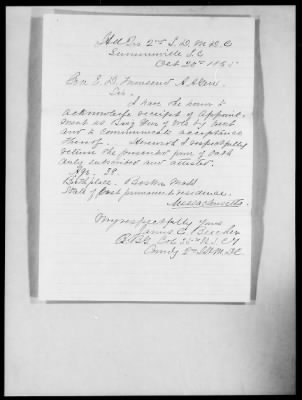 Hd Qrs 2nd S. D. M. D. C
Summerville S.C
Oct 20th 1865
Gen E. D. Townsend A. A Gen.
Sir.
I have the honor to
acknowledge receipt of Appoint-
ment as Brig Gen of Vols by Brevt
and to communicate acceptance
thereof. Herewith I respectfully
return the prescribed form of Oath
duly subscribed and attested.
Age. 38.
Birthplace. Boston Mass
State of last permanent residence.
Massachusetts.
Very respectfully Yours
James C. Beecher
Col 35th U.S.C.T
Comdg 2nd S.D. M. D.C